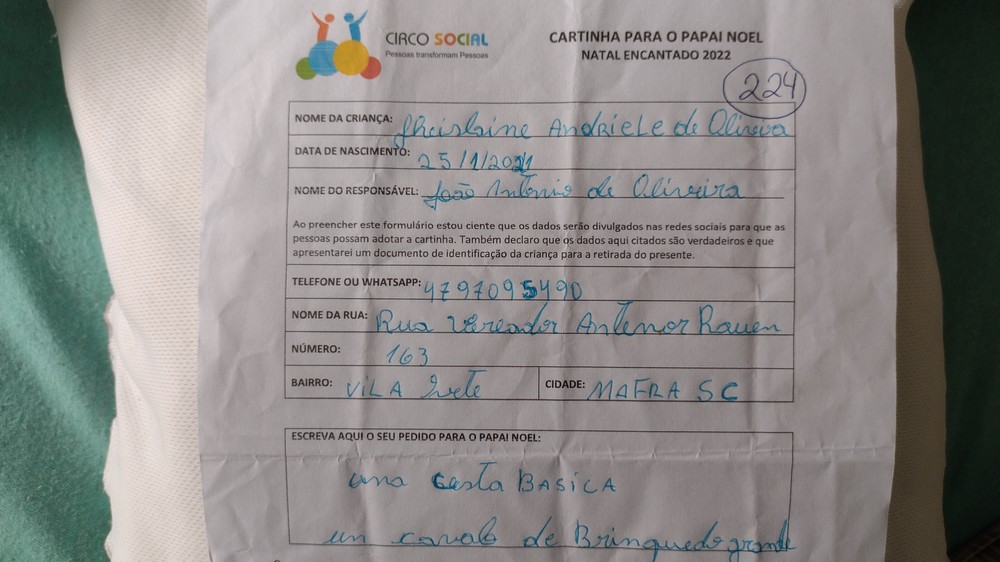 CIRCO SOCIAL
Pessoas transformam Pessoas
CARTINHA PARA O PAPAI NOEL
NATAL ENCANTADO 2022
224
NOME DA CRIANÇA: Andriele de Oliveira
DATA DE NASCIMENTO: 25/1/2021
NOME DO RESPONSÁVEL: João Antônio de Oliveira
Ao preencher este formulário estou ciente que os dados serão divulgados nas redes sociais para que as
pessoas possam adotar a cartinha. Também declaro que os dados aqui citados são verdadeiros e que
apresentarei um documento de identificação da criança para a retirada do presente.
TELEFONE OU WHATSAPP: 4797095490
NOME DA RUA: Rua Vereador Antenor Rauen
NÚMERO: 163
BAIRRO: VILA Ivete CIDADE: MAFRA SC
ESCREVA AQUI O SEU PEDIDO PARA O PAPAI NOEL:
uma cesta BASICA
um cavalo de Brinquedo grande